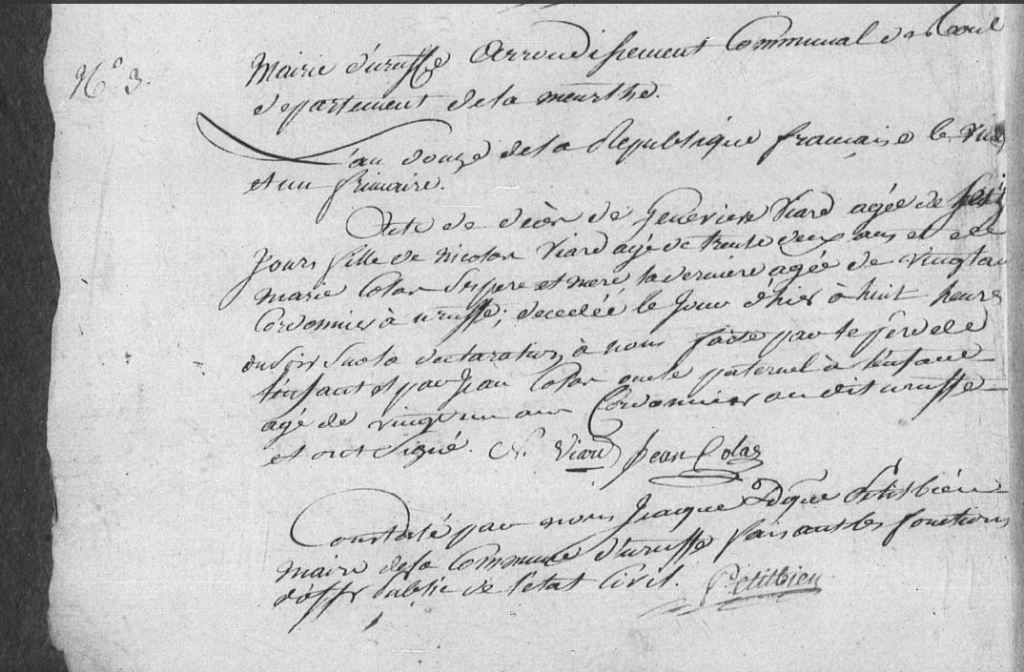 N° 3.
Mairie d'uruffe Arrondissement Communal de Toul
departement de la meurthe.
L'an douze de la Republique française le
et un frimaire.
Acte de décès de Genevieve Viard agée de
jours fille de nicolas Viard agé de trente deux ans et de
marie Colas ses pere et mere, la derniere agée de vingt
Cordonnier à uruffe; decedée le Jour d'hier à huit heures
du soir Sur la declaration à nous faite par le père de
l'enfant et par Jean Colas oncle paternel à l'enfant
agé de vingt un ans Cordonnier au dit uruffe
et ont signé. N. Viard Jean Colas
Constaté par nous Jacque Petitbien
maire de la Commune d'uruffe faisant les fonctions
d'offr public de l'état Civil. Petitbien